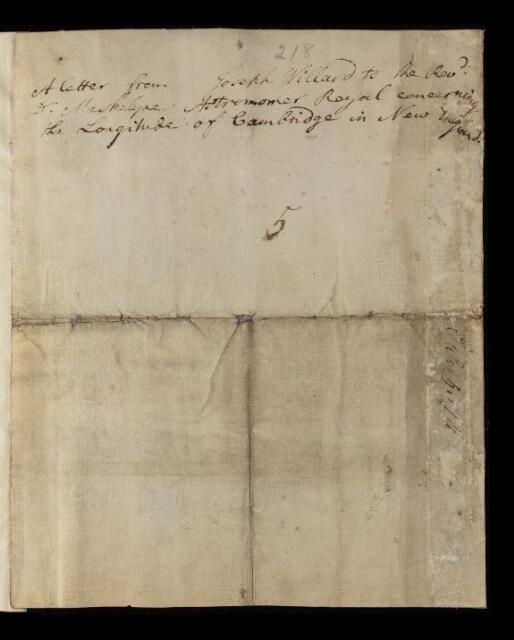 218
A letter from Joseph Willard to the Revd.
Dr. Maskelyne Astronomer Royal concerning
the Longitude of Cambridge in New England.
5